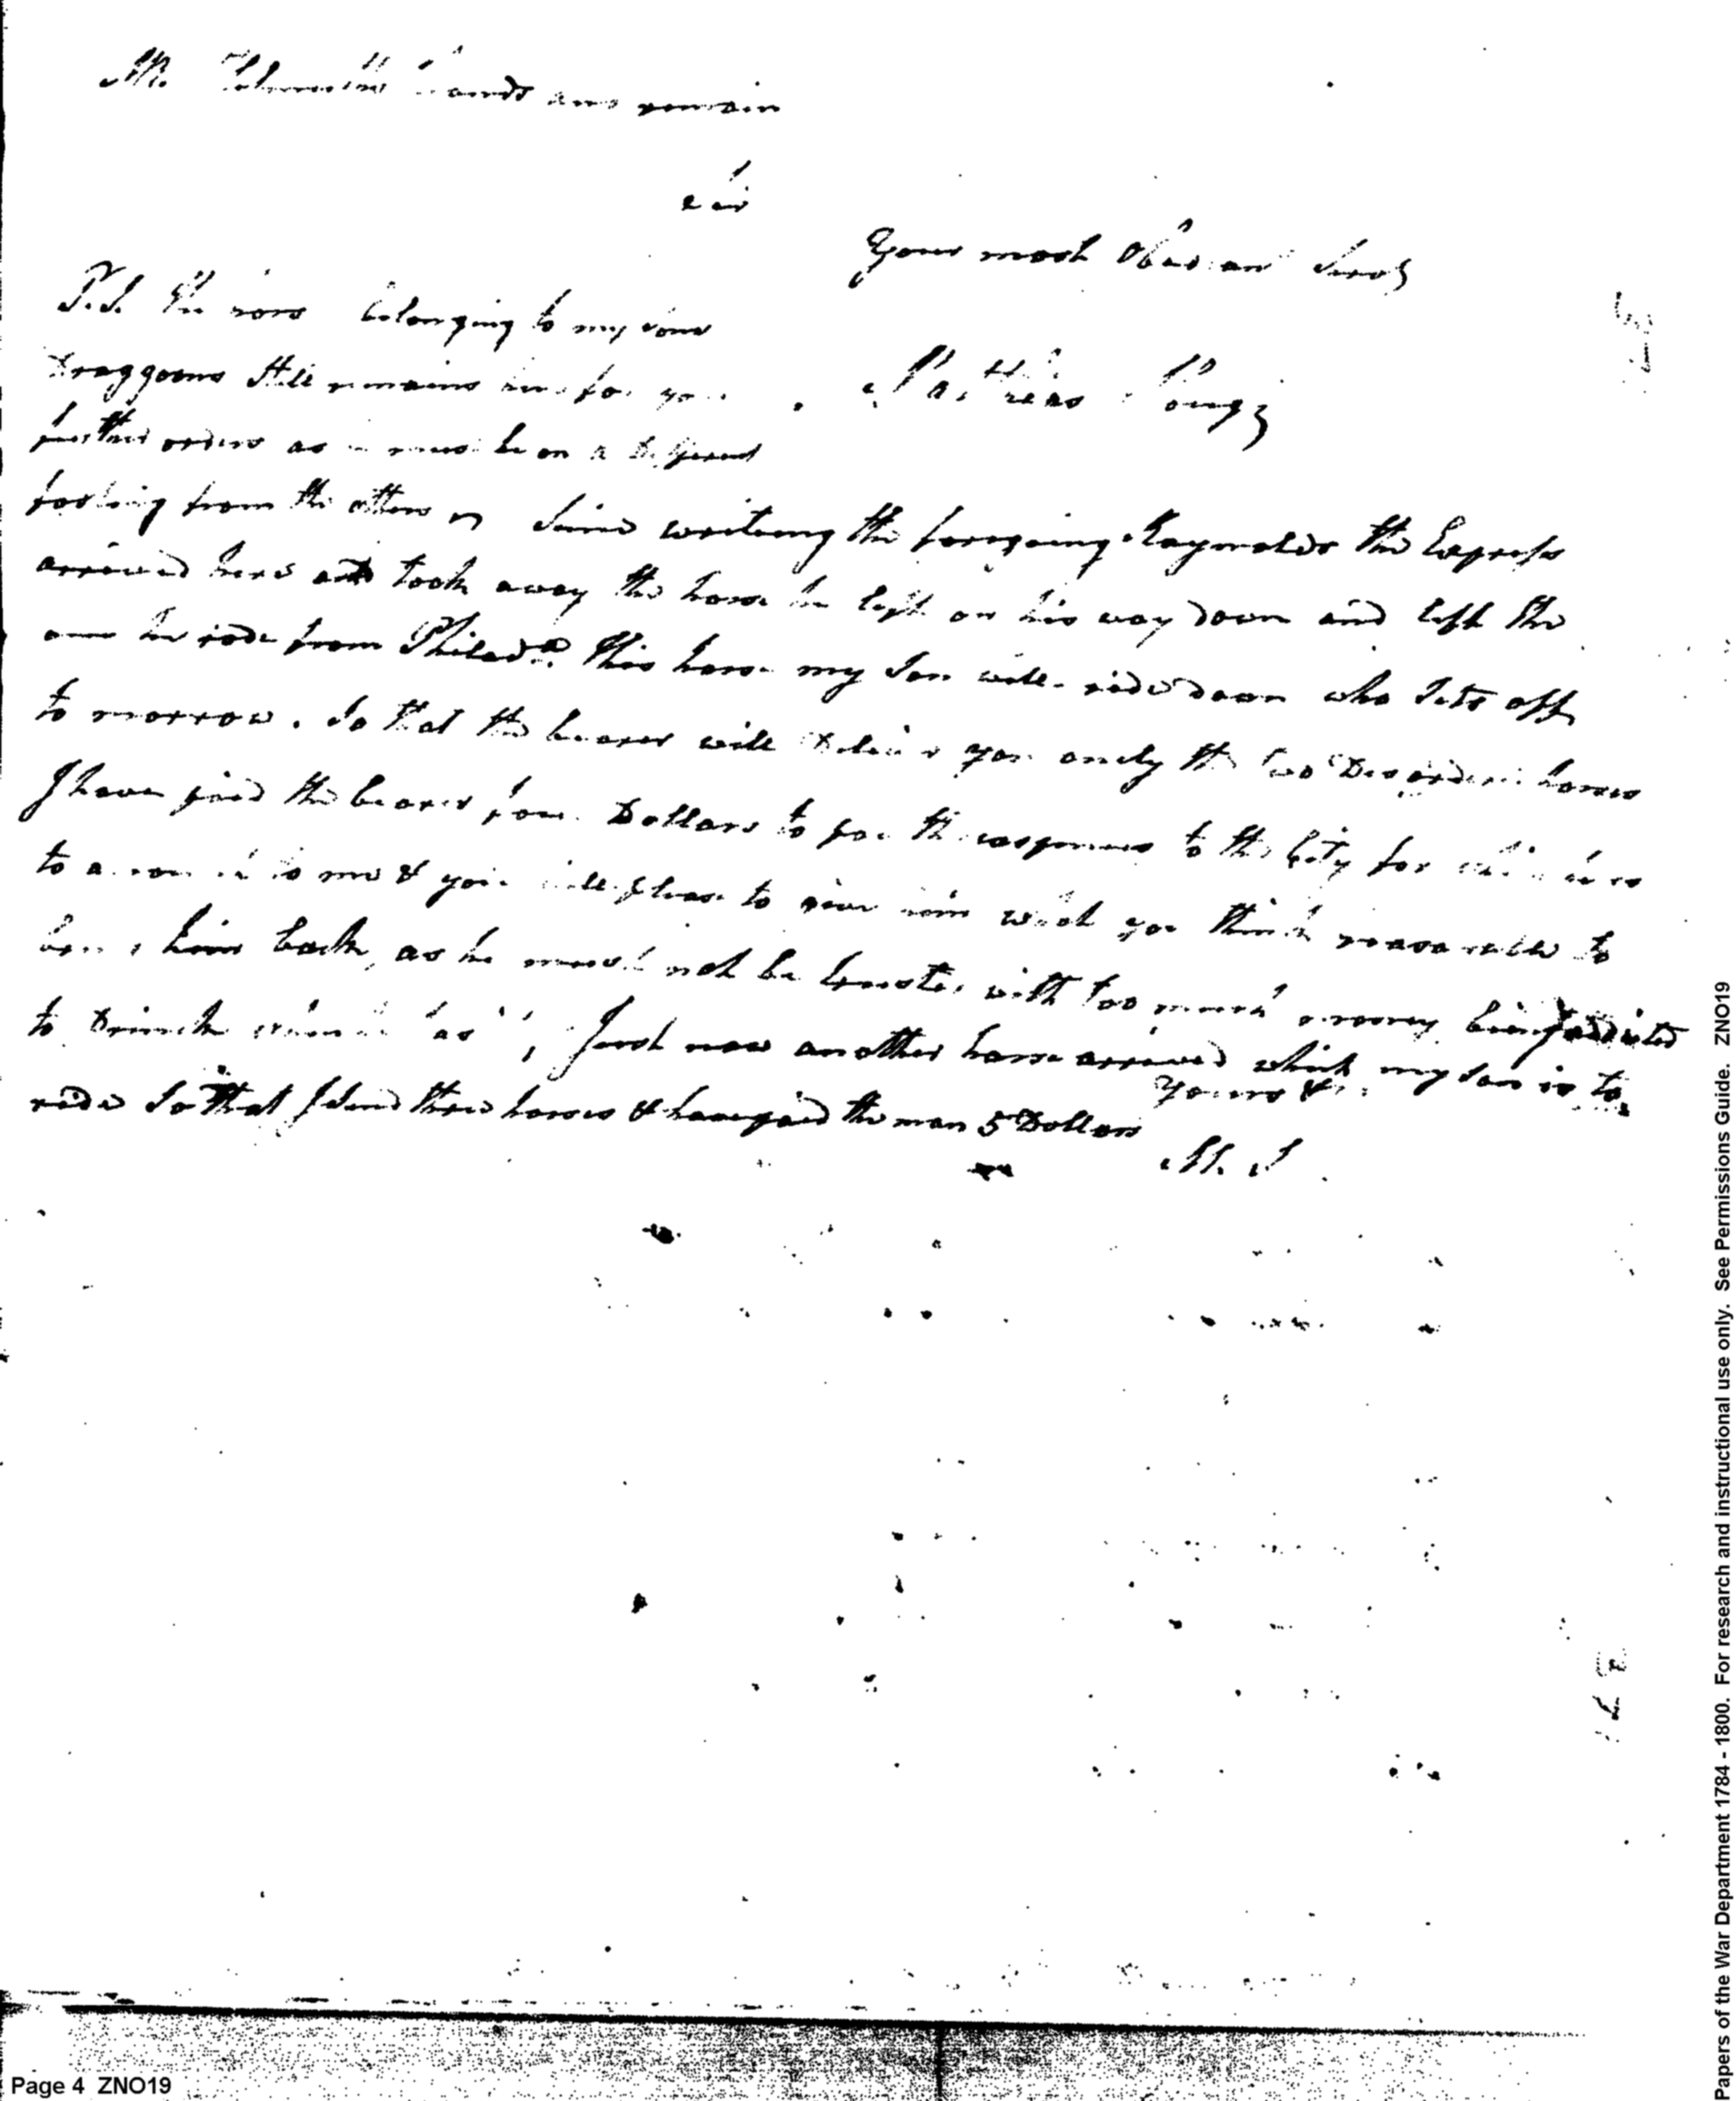 Mr. hands and remain
Sir
Your most Obedient Servt
P.S. The horse belonging to my sons
Draggoons still remains here for your
Matthias Slough
further orders as it must be on a Different
footing from the others
Since writeing the foregoing Raynolds the Express
arrived here and took away the horse he left on his way down and left the
one he rode from Philada. This horse my Son will ride down who sets off
to morrow. So that the bearer will Deliver you onely the two Disordered horses
I have paid the bearer four Dollars to pay the expences to the City for which he is
to account to me & you will please to give him what you think reasonable to
bear him back, as he must not be trusted with too much money being addicted
to Drinck , Just now another horse arrived which my Son is to
ride So that I Send three horses & have paid the man 5 Dollars
Yours &c.
M. S.
Page 4 ZNO19
Papers of the War Department 1784 - 1800. For research and instructional use only. See Permissions Guide. ZNO19